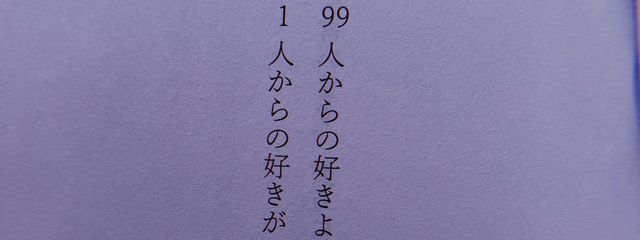 99人からの好きよ
1人からの好きが